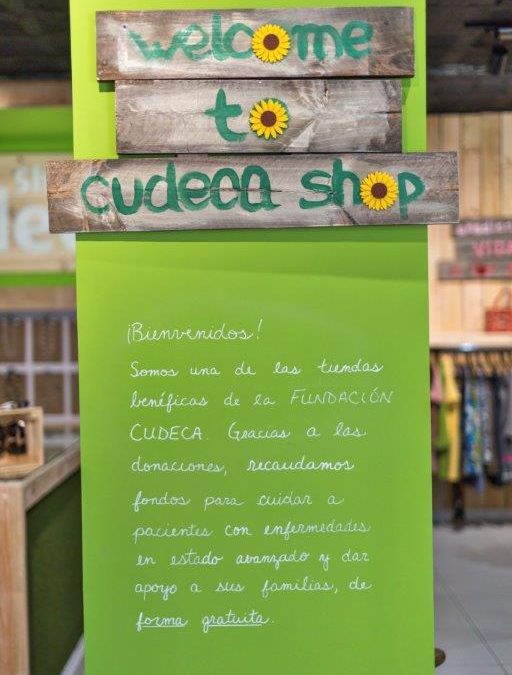 welcome
to
cudeca shop
¡Bienvenidos!
Somos una de las tiendas
benéficas de la FUNDACIÓN
CUDECA. Gracias a las
donaciones, recaudamos
fondos para cuidar a
pacientes con enfermedades
en estado avanzado y dar
apoyo a sus familias, de
forma gratuita.
VIDA